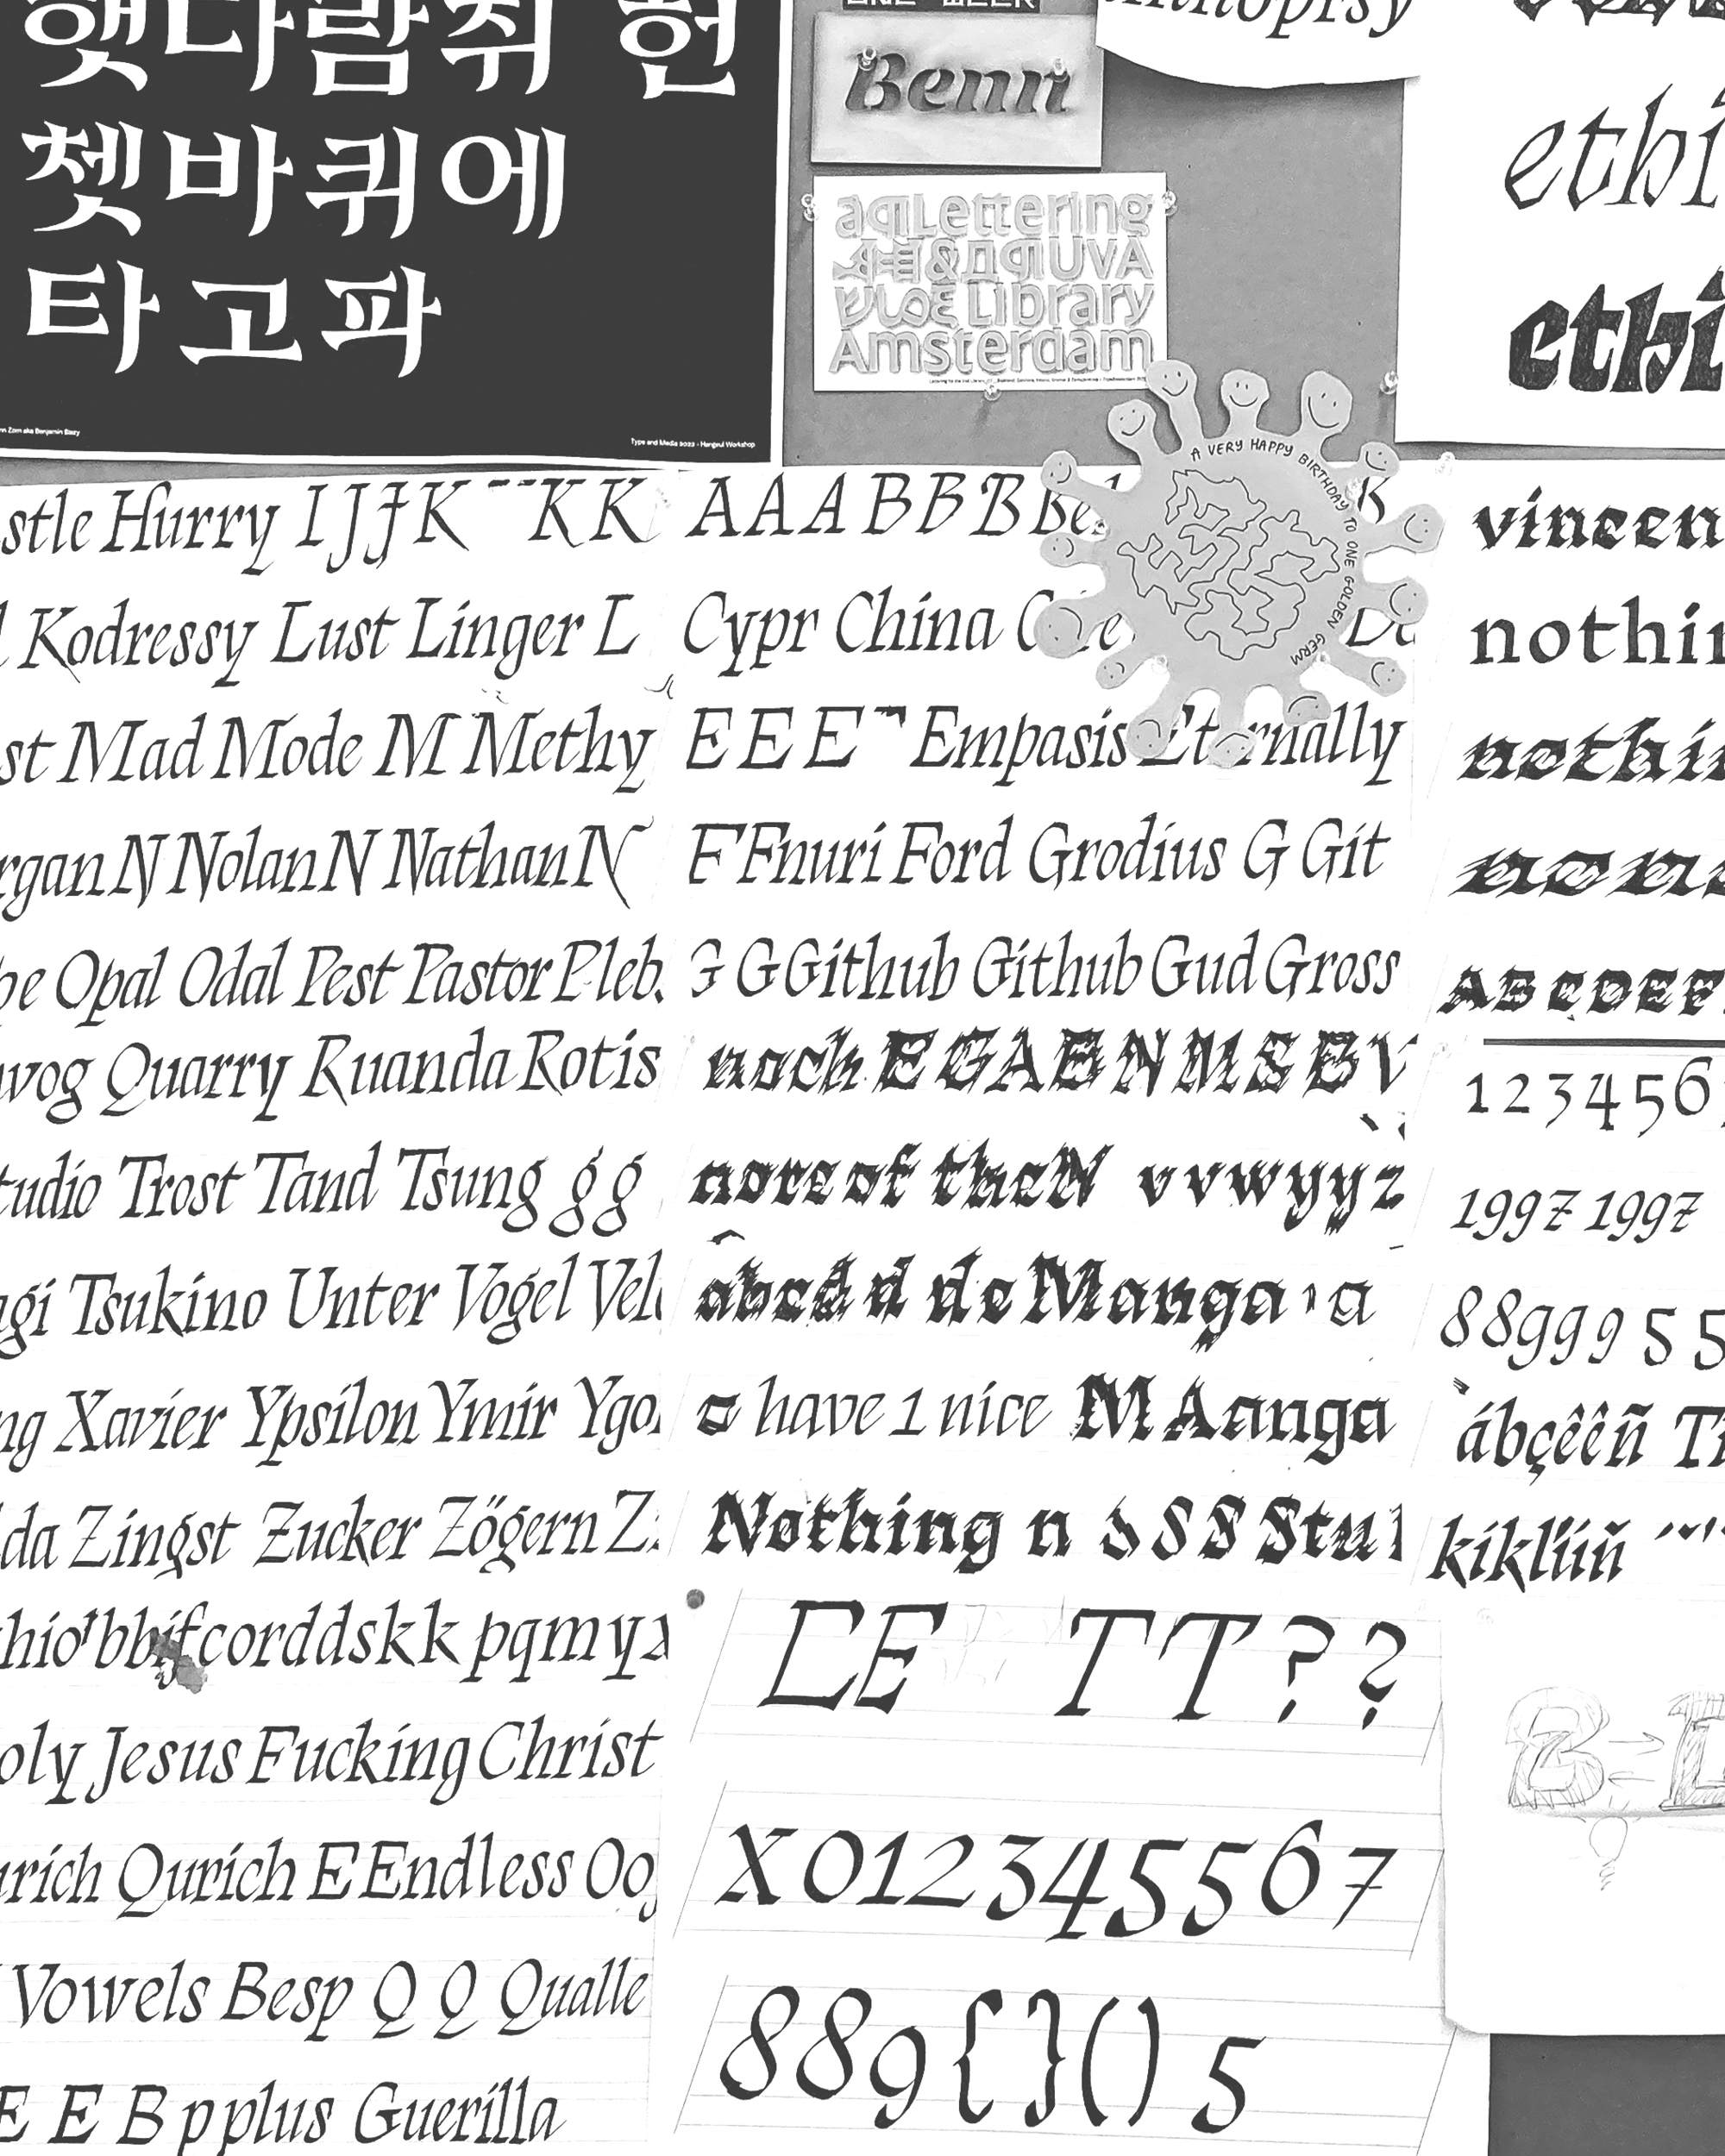 햇다람쥐 헌
쳇바퀴에
타고파
Type and Media 2022 - Hangeul Workshop
ONE WEEK
Benn
Lettering
& UvA
Library
Amsterdam
ethi
ethi
A VERY HAPPY BIRTHDAY TO ONE GOLDEN GERM
stle Hurry I J J K K K
Kodressy Lust Linger L
st Mad Mode M Methy
rgan N Nolan N Nathan N
pe Opal Odal Pest Pastor Pleb.
wog Quarry Ruanda Rotis
tudio Trost Tand Tsung g g
agi Tsukino Unter Vogel Vel
ng Xavier Ypsilon Ymir Ygo
da Zingst Zucker Zögern Z
hio bbifcorddskk pqmyx
oly Jesus Fucking Christ
urich Qurich E Endless Oo
Vowels Besp Q Q Qualle
E E B p plus Guerilla
A A A B B B Be
Cypr China
E E E Empasis Eternally
F Fnuri Ford Grodius G Git
G G Github Github Gud Gross
noch E G A B N M S B V
more of the N v v w y y z
abcdd d de Manga a
a have 1 nice M A anga
Nothing n s S S Stu
C E T T ? ?
X 0 1 2 3 4 5 5 6 7
8 8 9 { } ( ) 5
vincen
nothin
nothi
ABCDEF
1 2 3 4 5 6
1997 1997
8 8 9 9 9 5 5
ábçêêñ